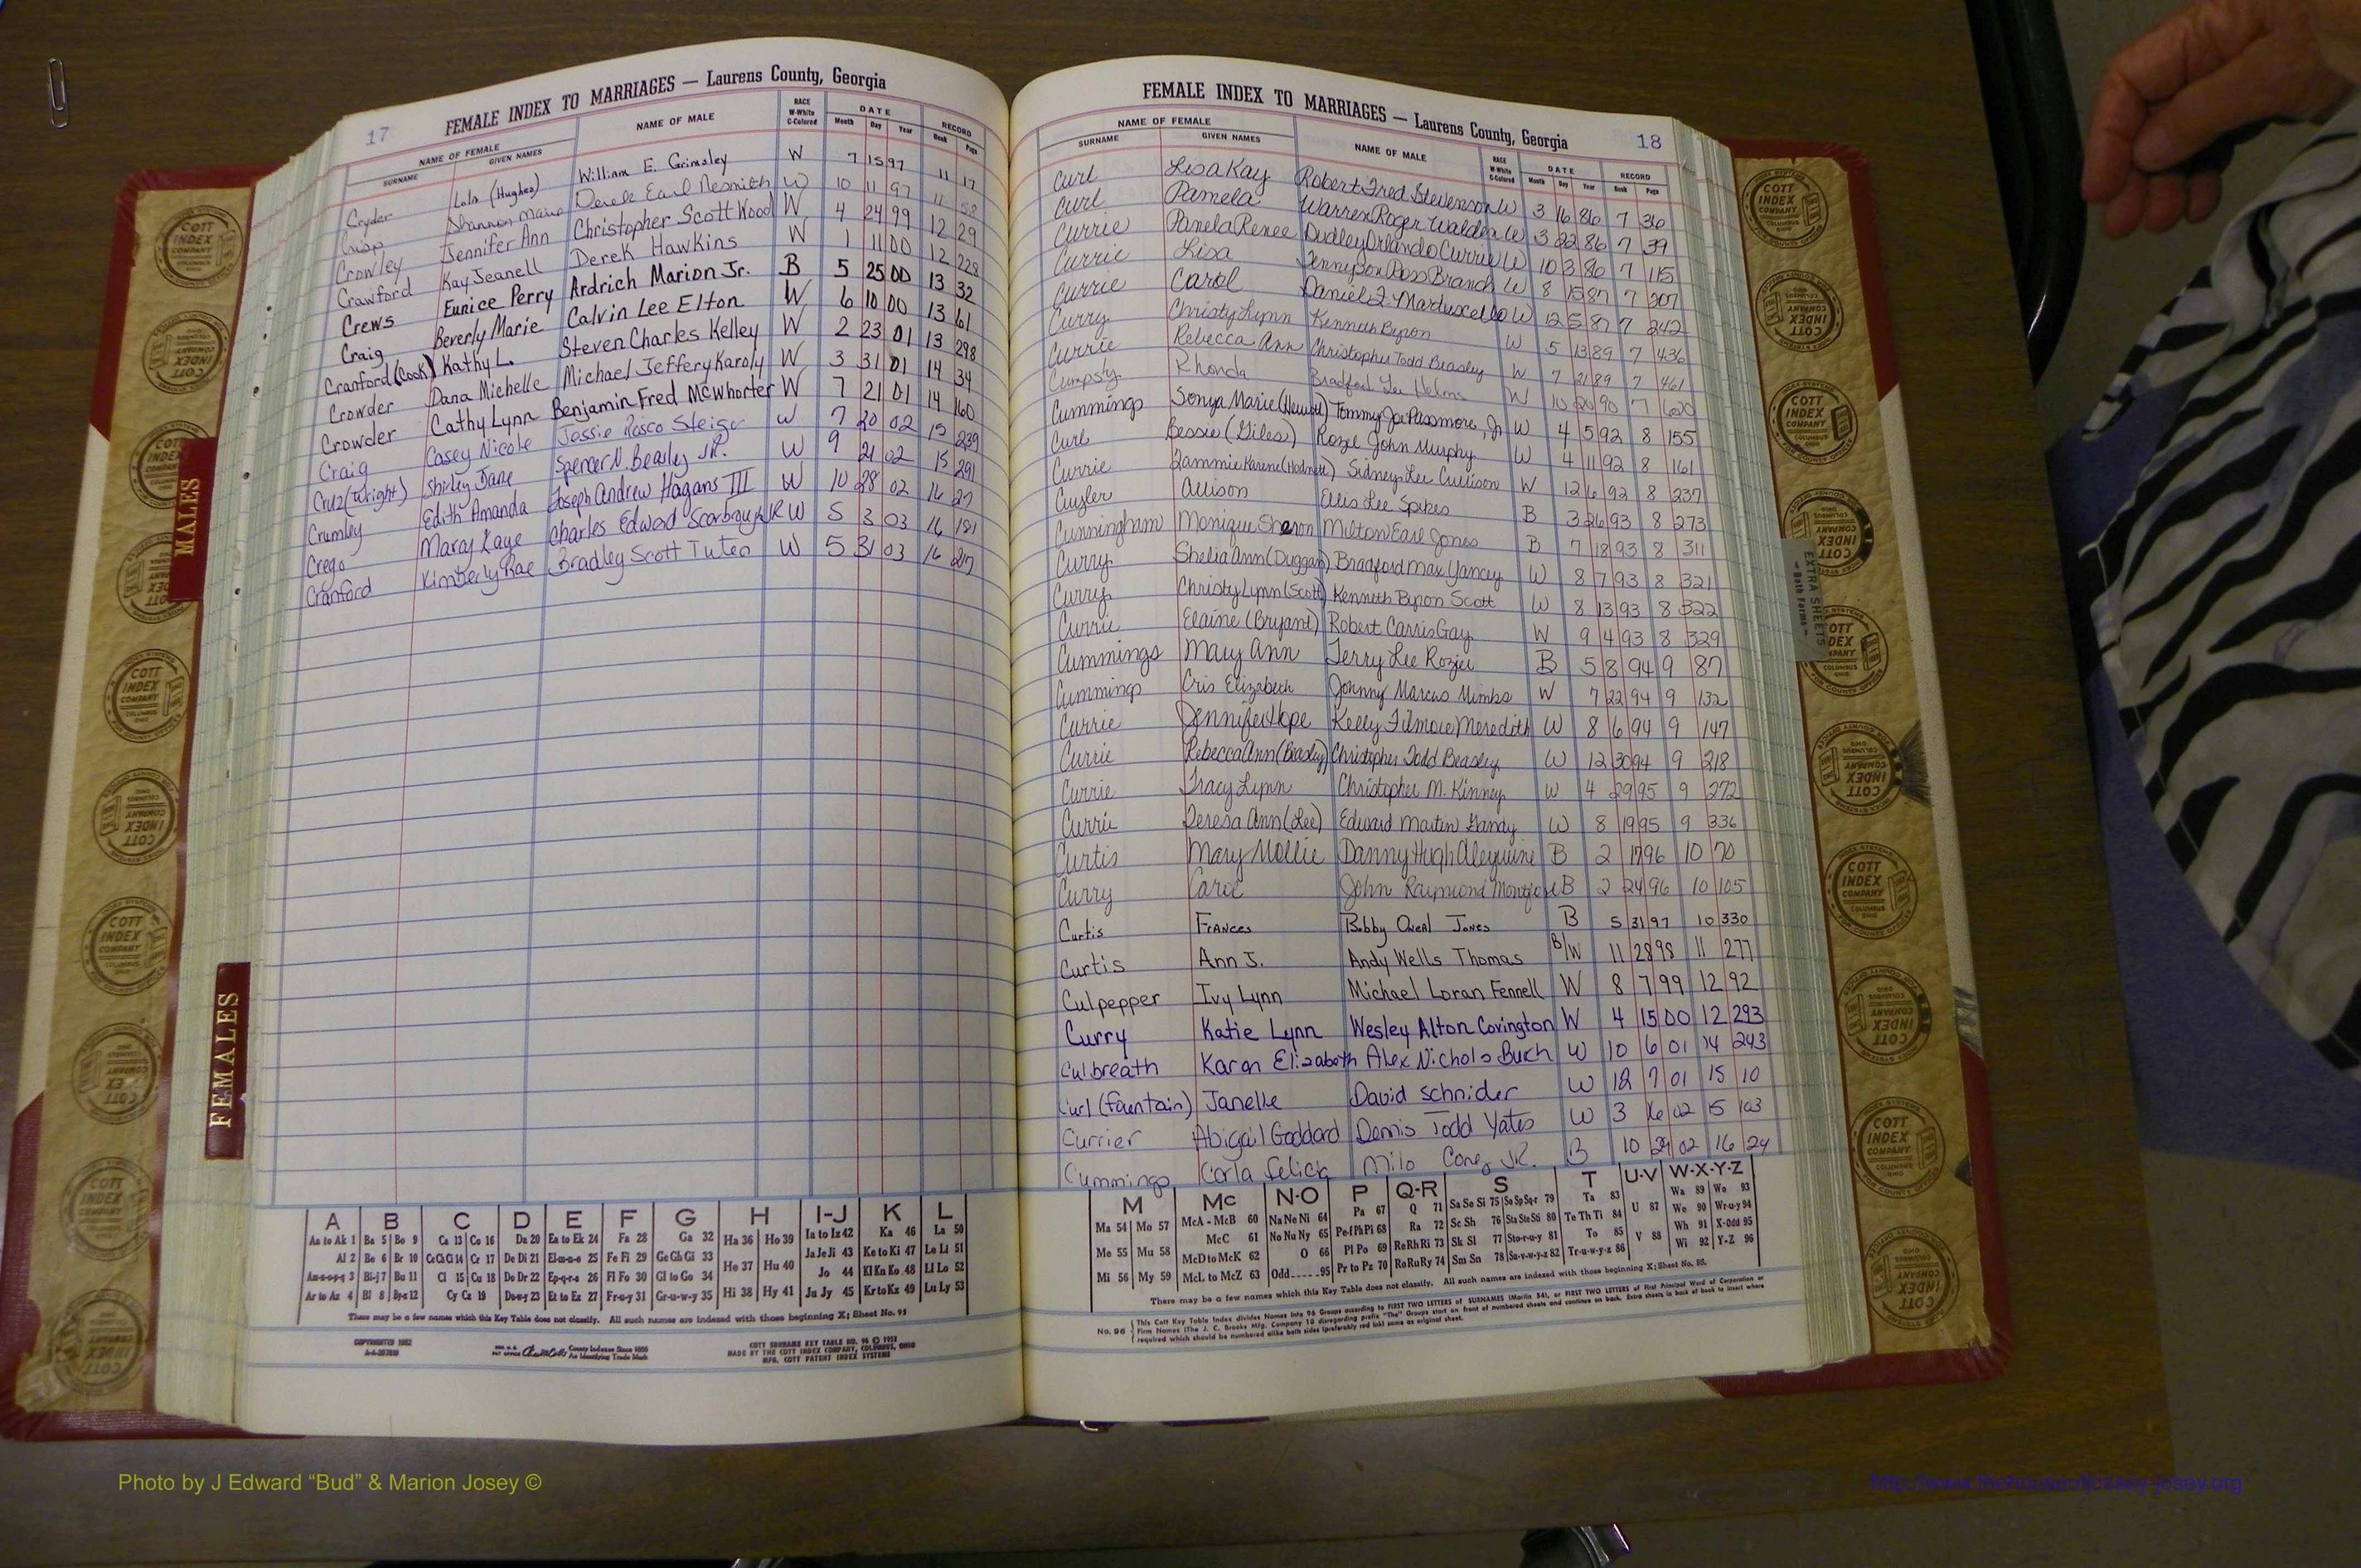 17
FEMALE INDEX TO MARRIAGES — Laurens County, Georgia
NAME OF FEMALE NAME OF MALE RACE W-White C-Colored DATE RECORD
SURNAME GIVEN NAMES Month Day Year Book Page
Cryder Lola (Hughes) William E. Grimsley W 7 15 97 11 17
Crisp Shannon Derek Earl Nesmith W 10 11 97 11 58
Crowley Jennifer Ann Christopher Scott Wood W 4 24 99 12 29
Crawford Kay Jeanell Derek Hawkins W 1 11 00 12 228
Crews Eunice Perry Ardrich Marion Jr. B 5 25 00 13 32
Craig Beverly Marie Calvin Lee Elton W 6 10 00 13 61
Cranford (Cook) Kathy L. Steven Charles Kelley W 2 23 01 13 298
Crowder Dana Michelle Michael Jeffery Karoly W 3 31 01 14 34
Crowder Cathy Lynn Benjamin Fred McWhorter W 7 21 01 14 160
Craig Casey Nicole Jessie Rosco Steiger W 7 20 02 15 239
Cruz (Wright) Shirley Jane Spencer N. Beasley JR. W 9 21 02 15 291
Crumley Edith Amanda Joseph Andrew Hagans III W 10 28 02 16 27
Crego Marcy Kaye Charles Edward Scarbrough JR W 5 3 03 16 181
Cranford Kimberly Rae Bradley Scott Tuten W 5 31 03 16 217
MALES
FEMALES
A B C D E F G H I-J K L
Aa to Ak 1 Ba 5 Bo 9 Ca 13 Co 16 Da 20 Ea to Ek 24 Fa 28 Ga 32 Ha 36 Ho 39 Ia to Iz 42 Ka 46 La 50
Al 2 Be 6 Br 10 Ce Ch Ci 14 Cr 17 De Di 21 El-m-n-o 25 Fe Fi 29 Ge Gh Gi 33 He 37 Hu 40 Ja Je Ji 43 Ke to Ki 47 Le Li 51
Am-n-o-p-q 3 Bi-j 7 Bu 11 Cl 15 Cu 18 Do Dr 22 Ep-q-r-s 26 Fl Fo 30 Gl to Go 34 Jo 44 Kl Kn Ko 48 Ll Lo 52
Ar to Az 4 Bl 8 By-z 12 Cy Cz 19 Du-w-y 23 Et to Ez 27 Fr-u-y 31 Gr-u-w-y 35 Hi 38 Hy 41 Ju Jy 45 Kr to Kz 49 Lu Ly 53
There may be a few names which this Key Table does not classify. All such names are indexed with those beginning X; Sheet No. 95
COPYRIGHTED 1952
County Indexes Since 1888
An Identifying Trade Mark
COTT SURNAME KEY TABLE NO. 96 © 1952
MADE BY THE COTT INDEX COMPANY, COLUMBUS, OHIO
MFG. COTT PATENT INDEX SYSTEMS
FEMALE INDEX TO MARRIAGES — Laurens County, Georgia
18
NAME OF FEMALE NAME OF MALE RACE W-White C-Colored DATE RECORD
SURNAME GIVEN NAMES Month Day Year Book Page
Curl Lisa Kay Robert Fred Stevenson W 3 16 86 7 36
Curl Pamela Warren Roger Walden W 3 22 86 7 39
Currie Pamela Renee Dudley Orlando Currie W 10 3 86 7 115
Currie Lisa Tennyson Ross Branch W 8 15 87 7 207
Currie Carol Daniel J. Martuscello W 12 5 87 7 242
Curry Christy Lynn Kenneth Byron W 5 13 89 7 436
Currie Rebecca Ann Christopher Todd Beasley W 7 21 89 7 461
Cumpsty Rhonda Bradford Lee Helms W 10 20 90 7 620
Cummings Sonya Marie (Hewett) Tommy Joe Passmore, Jr W 4 5 92 8 155
Curl Bessie (Giles) Rozel John Murphy W 4 11 92 8 161
Currie Tammie Karene (Hodnett) Sidney Lee Cullison W 12 6 92 8 237
Cuyler Allison Ellis Lee Spikes B 3 26 93 8 273
Cunningham Monique Sharon Milton Earl Jones B 7 18 93 8 311
Curry Shelia Ann (Duggan) Bradford Max Yancey W 8 7 93 8 321
Curry Christy Lynn (Scott) Kenneth Byron Scott W 8 13 93 8 322
Currie Elaine (Bryant) Robert Carris Gay W 9 4 93 8 329
Cummings Mary Ann Terry Lee Rozier B 5 8 94 9 87
Cummings Cris Elizabeth Johnny Marcus Mimbs W 7 22 94 9 132
Currie Jennifer Hope Kelly Filmore Meredith W 8 6 94 9 147
Currie Rebecca Ann (Beasley) Christopher Todd Beasley W 12 30 94 9 218
Currie Tracy Lynn Christopher M. Kinney W 4 29 95 9 272
Currie Teresa Ann (Lee) Edward Marten Gandy W 8 19 95 9 336
Curtis Mary Mollie Danny Hugh B 2 17 96 10 70
Curry Carol John Raymond B 2 24 96 10 105
Curtis Frances Bobby Oneal Jones B 5 31 97 10 330
Curtis Ann J. Andy Wells Thomas B/W 11 28 98 11 277
Culpepper Ivy Lynn Michael Loran Fennell W 8 7 99 12 92
Curry Katie Lynn Wesley Alton Covington W 4 15 00 12 293
Culbreath Karen Elizabeth Alex Nichols Burch W 10 6 01 14 243
Curl (Fountain) Janelle David Schnider W 12 7 01 15 10
Currier Abigail Goddard Dennis Todd Yates W 3 16 02 15 103
Cummings Carla Felicia Milo Coney JR. B 10 29 02 16 24
M Mc N-O P Q-R S T U-V W-X-Y-Z
Ma 54 Mo 57 McA - McB 60 Na Ne Ni 64 Pa 67 Q 71 Sa Se Si 75 So Sp Sq-r 79 Ta 83 U 87 Wa 89 Wo 93
Me 55 Mu 58 McC 61 No Nu Ny 65 Pe-f Ph Pi 68 Ra 72 Sc Sh 76 Sta Ste Sti 80 Te Th Ti 84 We 90 Wr-u-y 94
McD to McK 62 O 66 Pl Po 69 Re Rh Ri 73 Sk Sl 77 Sto-r-u-y 81 To 85 V 88 Wh 91 X-Odd 95
Mi 56 My 59 McL to McZ 63 Odd-----95 Pr to Pz 70 Ro Ru Ry 74 Sm Sn 78 Su-v-w-y-z 82 Tr-u-w-y-z 86 Wi 92 Y-Z 96
There may be a few names which this Key Table does not classify. All such names are indexed with those beginning X; Sheet No. 95.
No. 96 This Cott Key Table Index divides Names into 96 Groups according to FIRST TWO LETTERS of SURNAMES (Marlin 54), or FIRST TWO LETTERS of First Principal Word of Corporation or
Firm Names (The J. C. Brooks Mfg. Company 10 disregarding prefix "The" Groups start on front of numbered sheets and continue on back. Extra sheets in back of book to insert where
required which should be numbered alike both sides (preferably red ink) same as original sheet.
EXTRA SHEETS
COTT INDEX COMPANY COLUMBUS OHIO
Photo by J Edward “Bud” & Marion Josey ©
http://www.thehouseofjossey-josey.org